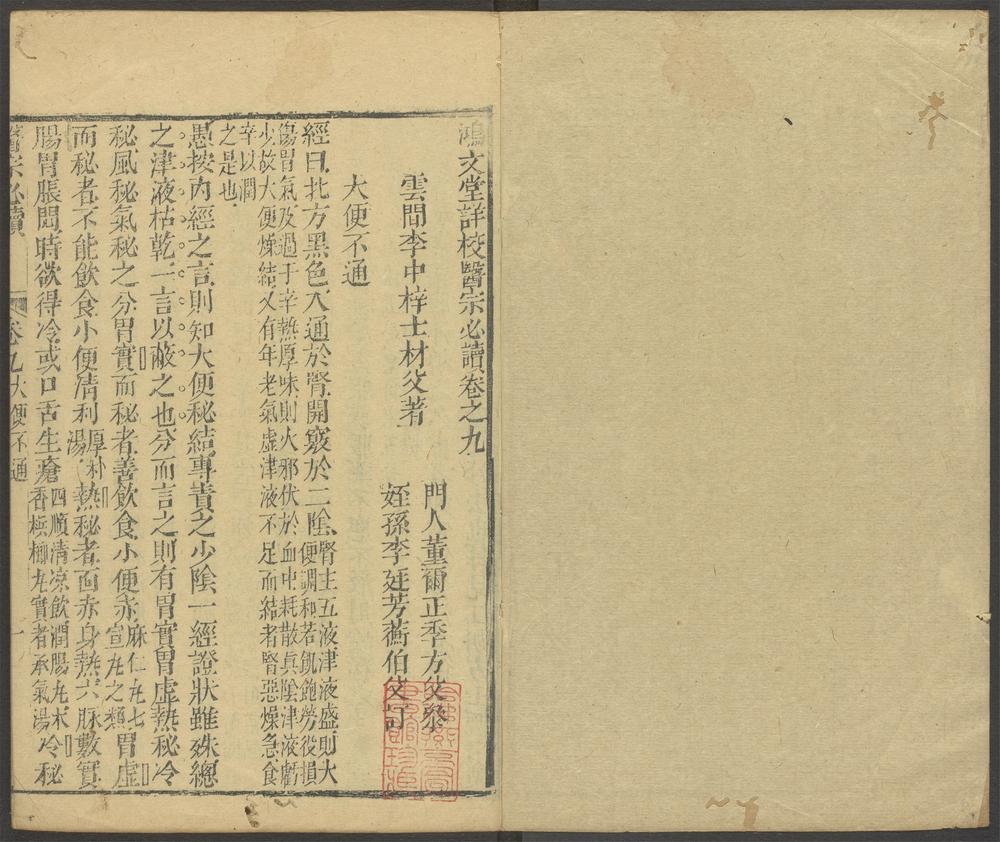 鴻文堂詳校醫宗必讀卷之九
雲間李中梓士材父著
門人董爾正季方父參
姪孫李廷芳蘅伯父訂
大便不通
經曰北方黑色入通於腎開竅於二陰
腎主五液津液盛則大
便調和若飢飽勞役損
傷胃氣及過于辛熱厚味則火邪伏於血中耗散真陰津液虧
少故大便燥結又有年老氣虛津液不足而結者腎惡燥急食
辛以潤
之是也
愚按內經之言則知大便秘結專責之少陰一經證狀雖殊總
之津液枯乾一言以蔽之也分而言之則有胃實胃虛熱秘冷
秘風秘氣秘之分胃實而秘者善飲食小便赤麻仁丸七宣丸之類胃虛
而秘者不能飲食小便清利厚朴湯熱秘者面赤身熱六脉數實
腸胃脹悶時欲得冷或口舌生瘡四順清涼飲潤腸丸木香檳榔丸實者承氣湯冷秘
醫宗必讀 卷九大便不通 一